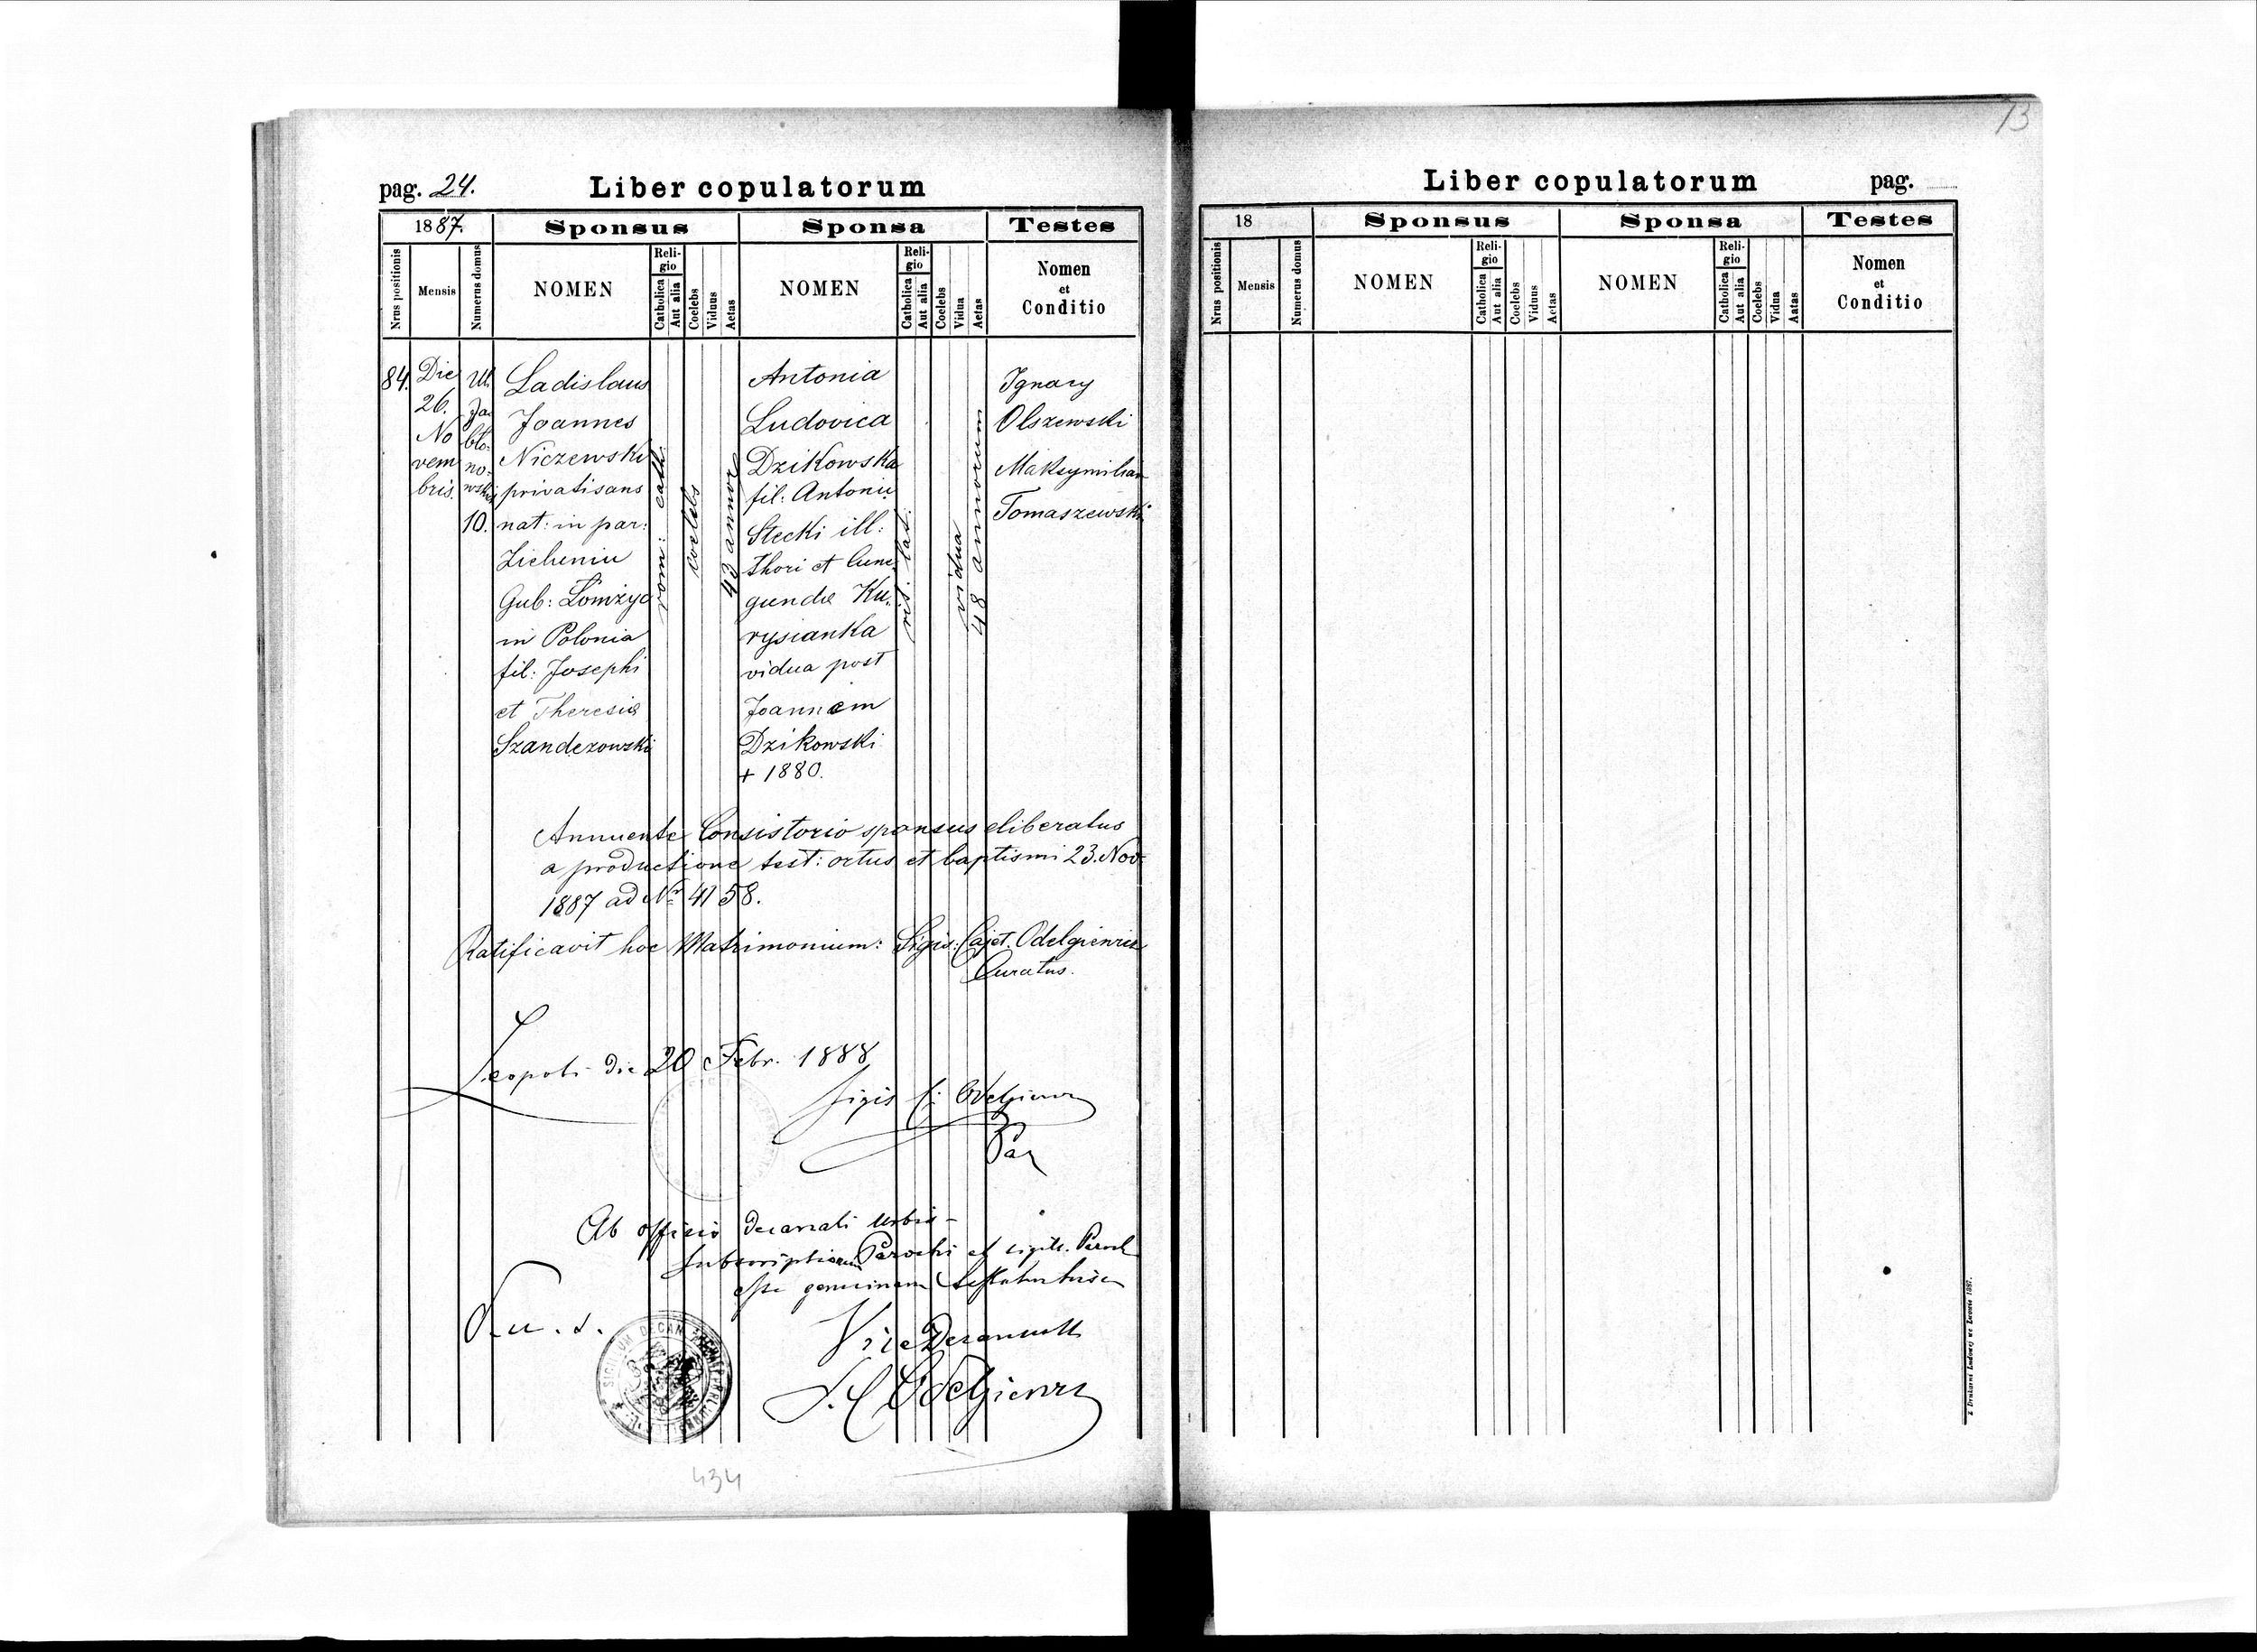 73
pag. 24.
Liber copulatorum
1887.
Sponsus
Sponsa
Testes
Nrus positionis
Mensis
Numerus domus
NOMEN
Religio
Catholica
Aut alia
Coelebs
Viduus
Aetas
NOMEN
Religio
Catholica
Aut alia
Coelebs
Vidua
Aetas
Nomen
et
Conditio
84.
Die
26.
No
vem
bris.
Ul.
Ja
bło-
no-
wskich
10.
Ladislaus
Joannes
Niczewski
privatisans
nat: in par:
Zieluniu
Gub: Łomżyc
in Polonia
fil: Josephi
et Theresia
Szandezowski
rom: cath.
coelebs
43 annor
Antonia
Ludovica
Dzikowska
fil: Antonii
Stecki ill:
thori et Cune
gundae Ku-
rysianka
vidua post
Joannem
Dzikowski
+ 1880.
rit. lat.
vidua
48 annorum
Ignacy
Olszewski
Maksymilian
Tomaszewski
Annuente Consistorio sponsus eliberatus
a productione test: ortus et baptismi 23. Nov
1887 ad Nr 4158.
Ratificavit hoc Matrimonium: Sigis: Cajet. Odelgiewicz
Curatus.
Leopoli die 20 Febr. 1888
Sigis C: Odelgiewicz
Par
Ab officio Decanali Urbis-
Subscriptionem Parochi et sigill. Paroch
esse genuinam
ViceDecanus
S. C Odelgiewicz
SIGILLUM DECAN
434
Liber copulatorum
pag.
18
Sponsus
Sponsa
Testes
Nrus positionis
Mensis
Numerus domus
NOMEN
Religio
Catholica
Aut alia
Coelebs
Viduus
Aetas
NOMEN
Religio
Catholica
Aut alia
Coelebs
Vidua
Aatas
Nomen
et
Conditio
Z Drukarni Ludowej we Lwowie 1887.